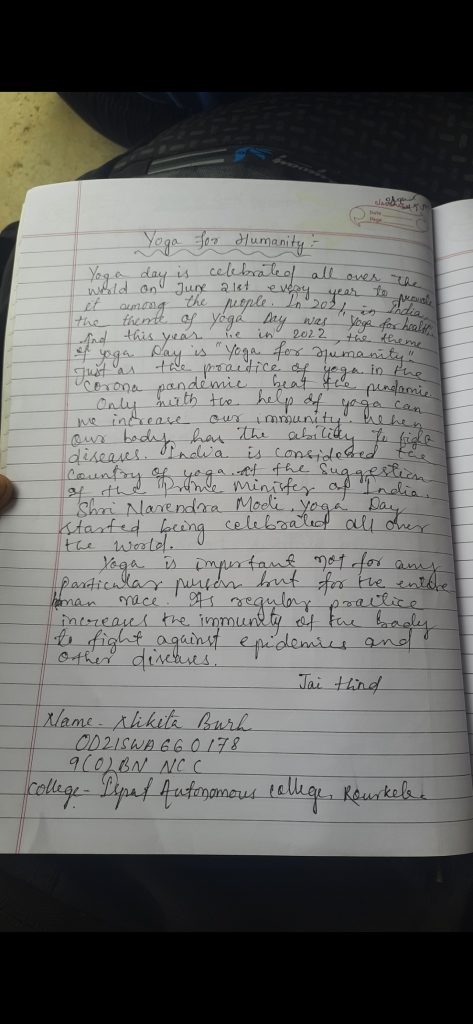 Date
Page
Yoga for Humanity :-
Yoga day is celebrated all over the
world on June 21st every year to promote
it among the people. In 2021, in India
the theme of Yoga Day was "Yoga for health"
And this year i.e in 2022, the theme
of yoga Day is "Yoga for Humanity".
Just as the practice of yoga in the
corona pandemic beat the pandamic.
Only with the help of yoga can
we increase our immunity. When
our body has the ability to fight
diseases. India is considered the
country of yoga. At the suggestion
of the Prime Minister of India.
Shri Narendra Modi, Yoga Day
started being celebrated all over
the world.
Yoga is important not for any
particular person but for the entire
human race. Its regular practice
increases the immunity of the body
to fight against epidemics and
other diseases.
Jai Hind
Name - Nikita Burh
OD21SWA660178
9(O)BN NCC
College - Ispat Autonomous college, Rourkela.